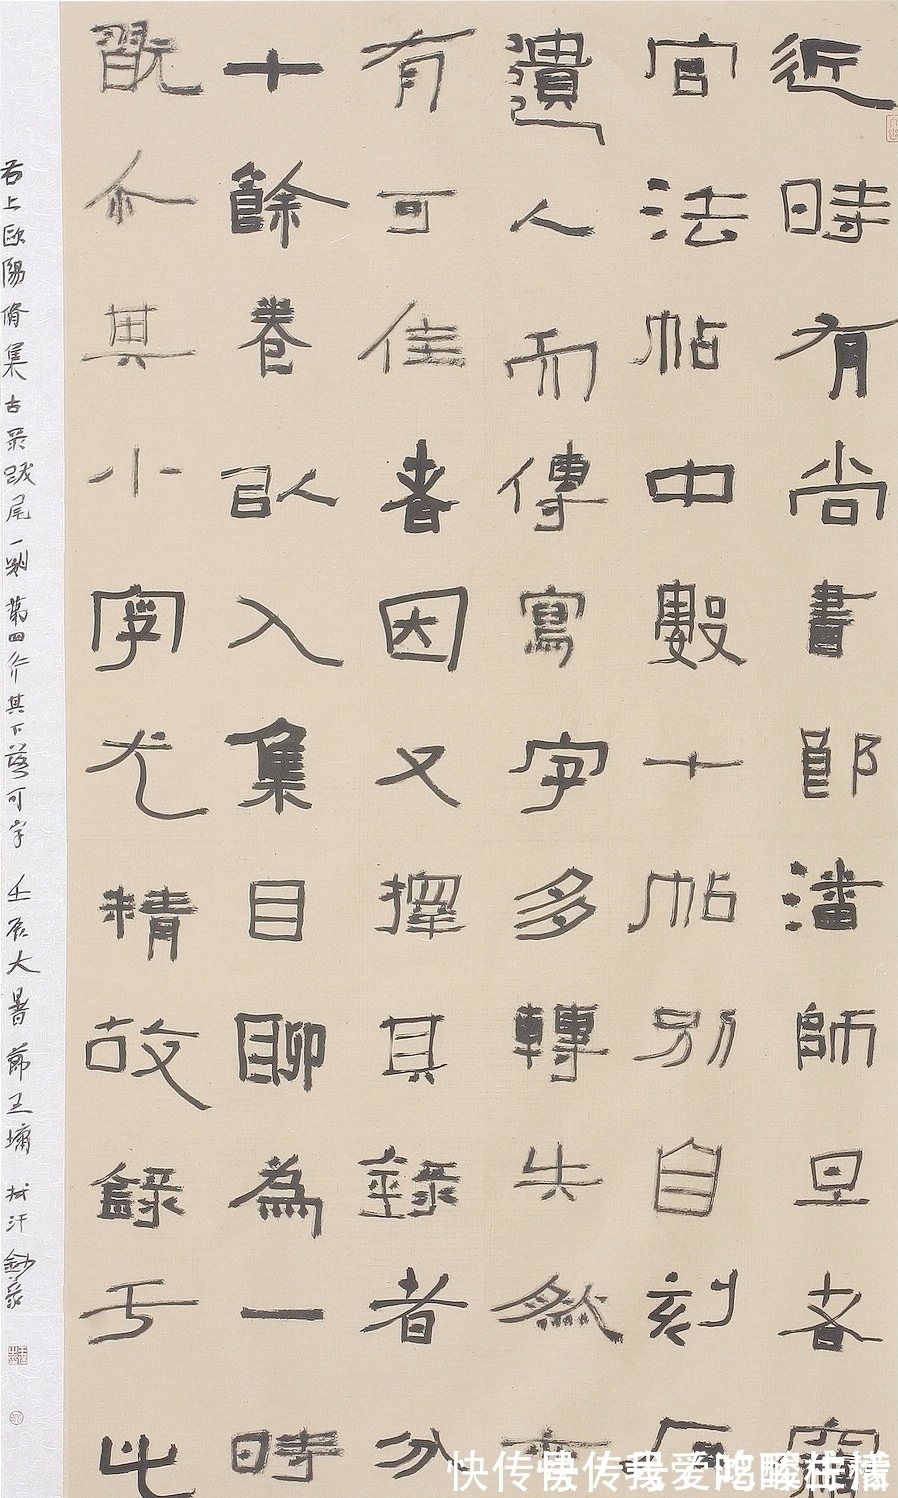 近時有尚書郎潘師旦者竊
官法帖中數十帖別自刻石
遺人而傳寫字多轉失然亦
有可佳者因又擇其錄者分
十餘卷以入集目聊為一時
翫亦其小字尤精故錄于此
右上歐陽脩集古录跋尾一則第四行其下落可字 壬辰大暑 節王墉 拭汗鈔